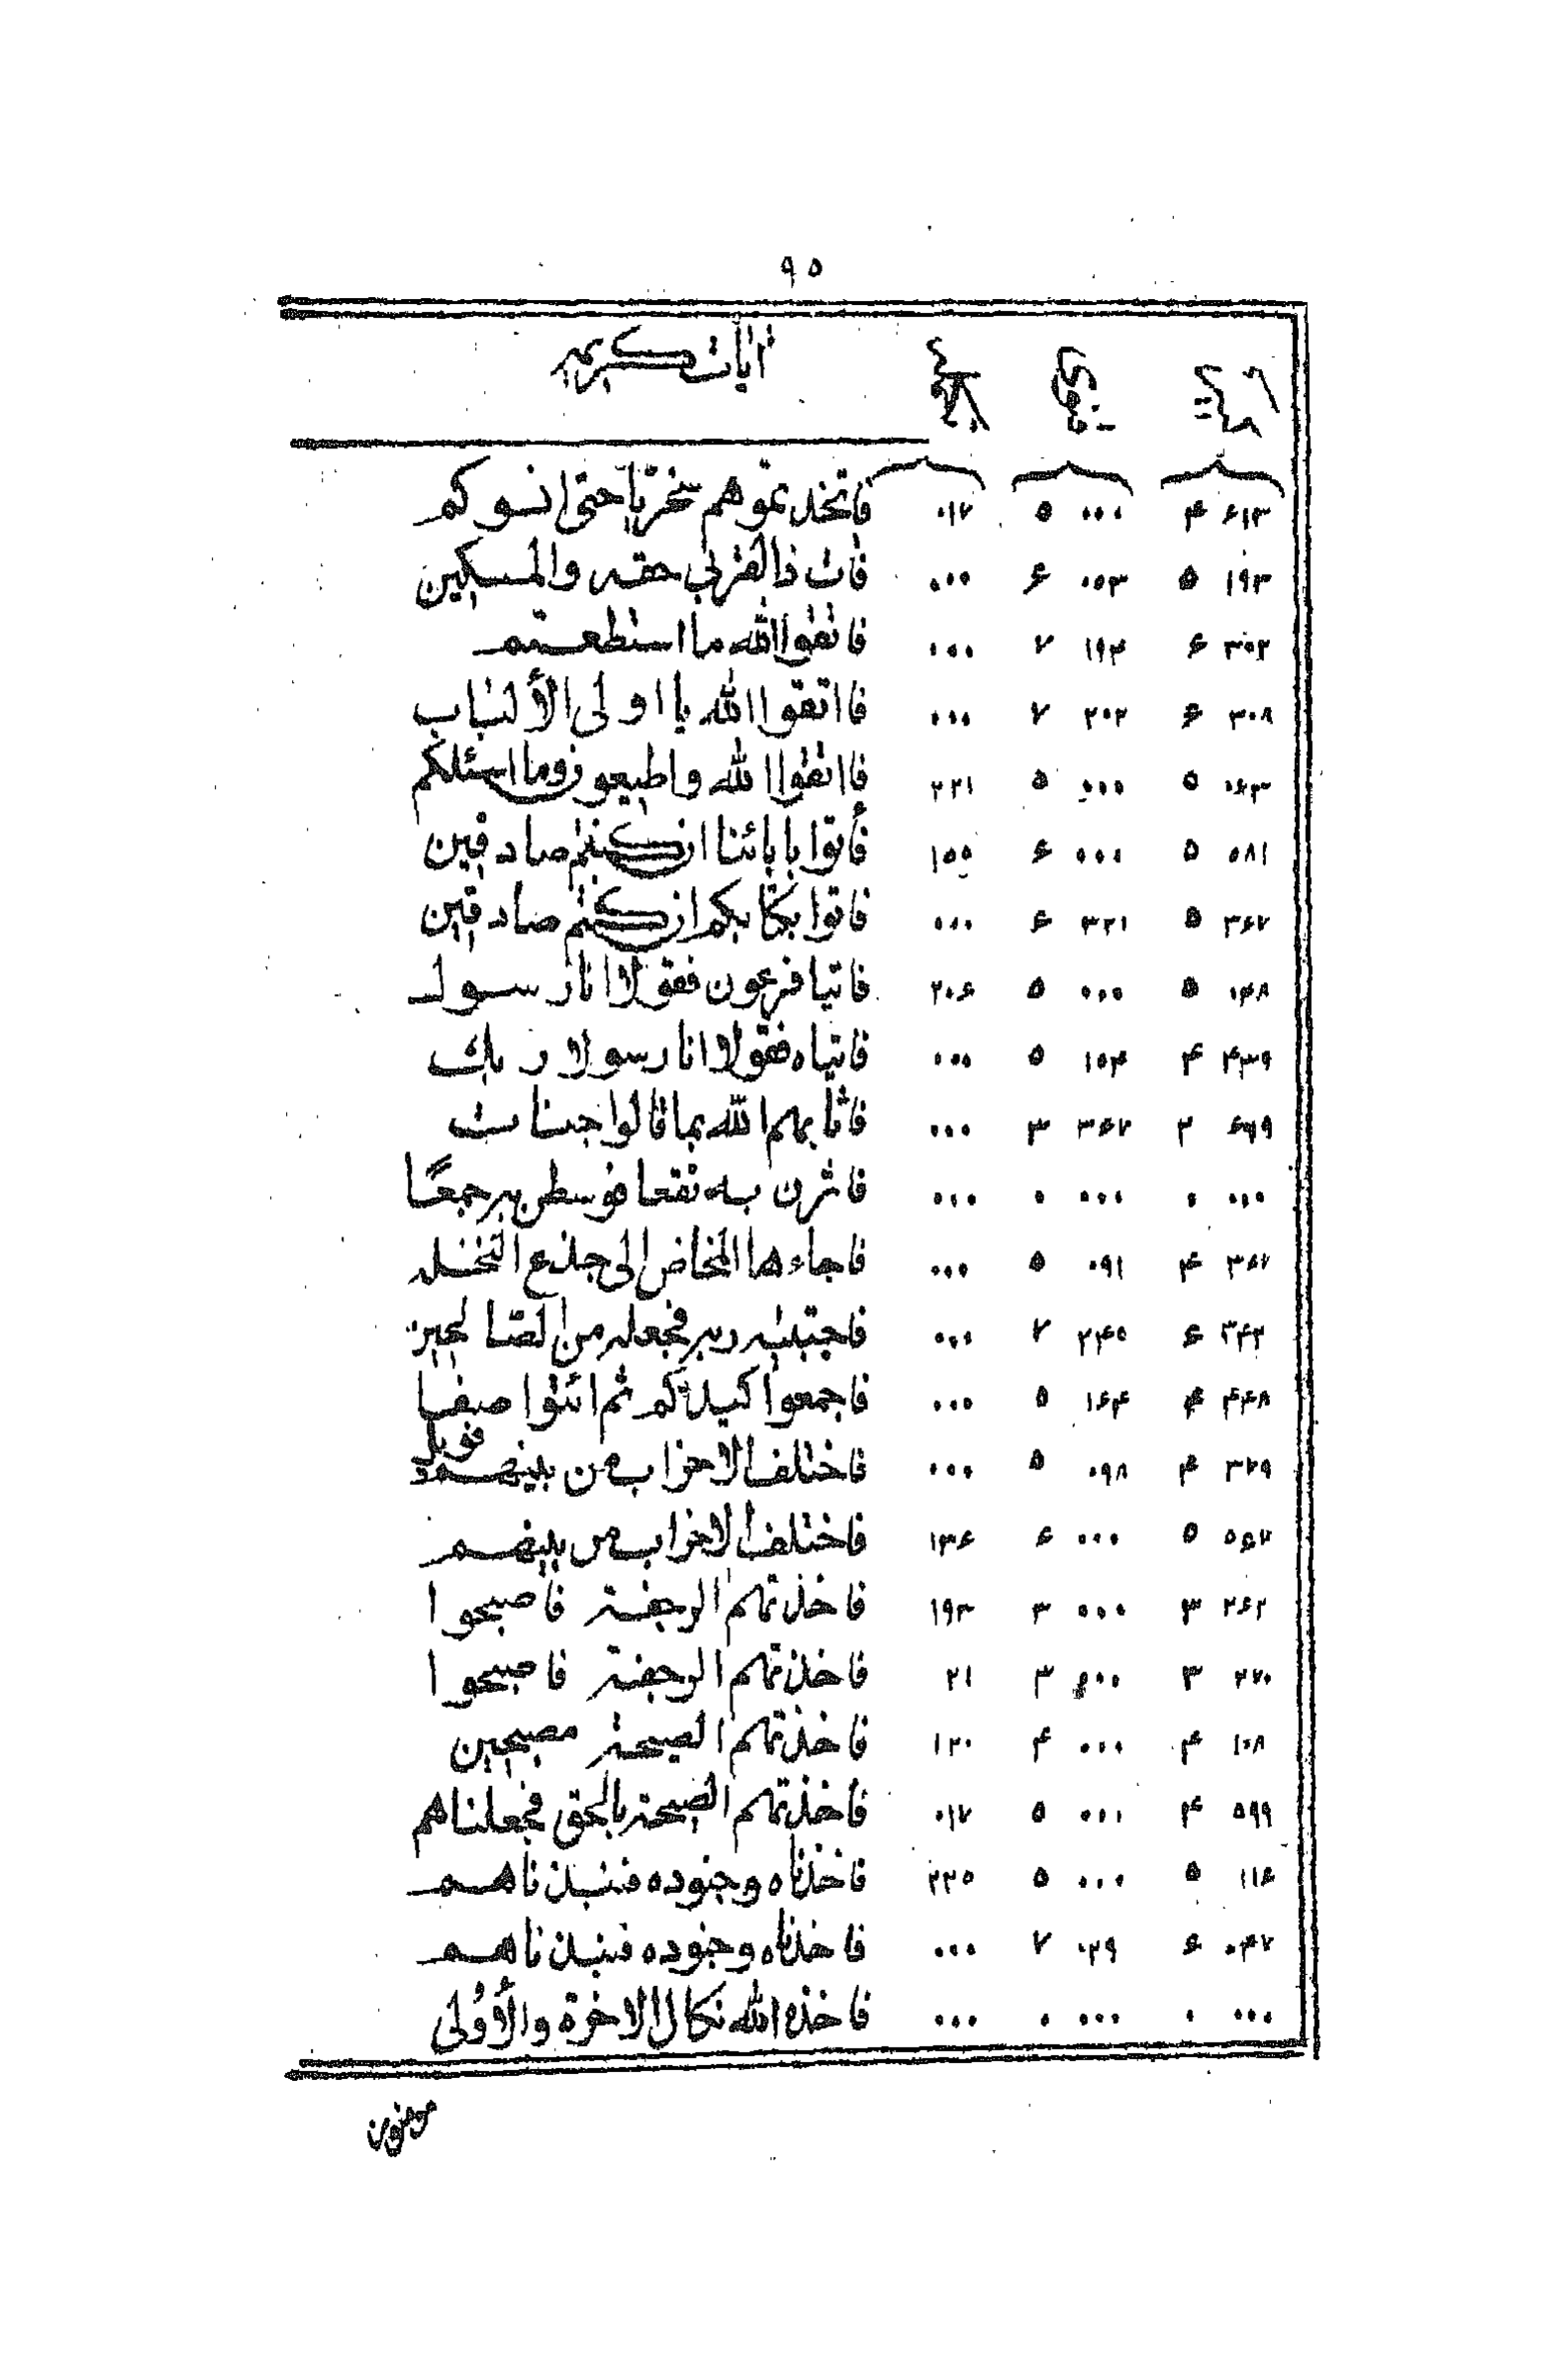 ٩٥
آیات کریمه
۶۱۳ ۴ ۰۰۰ ۵ ۰۱۷ فاتخذتموهم سخریا حتی انسوکم
۱۹۳ ۵ ۰۵۳ ۶ ۰۰۰ فات ذالقربی حقه والمسکین
۳۰۲ ۶ ۱۹۴ ۷ ۰۰۰ فاتقوا الله ما استطعتم
۳۰۸ ۶ ۲۰۲ ۷ ۰۰۰ فااتقوا الله یا اولی الألباب
۰۶۳ ۵ ۰۰۰ ۵ ۲۲۱ فااتقوا الله واطیعون وما اسئلکم
۵۸۱ ۵ ۰۰۰ ۶ ۱۵۵ فأتوا بابائنا ان کنتم صادقین
۳۶۷ ۵ ۳۲۱ ۶ ۰۰۰ فاتوا بکتابکم ان کنتم صادقین
۰۴۸ ۵ ۰۰۰ ۵ ۲۰۶ فاتیا فرعون فقولا انا رسول
۴۳۹ ۴ ۱۵۴ ۵ ۰۰۰ فاتیاه فقولا انا رسولا ربك
۶۹۹ ۲ ۳۶۷ ۳ ۰۰۰ فاثابهم الله بما قالوا جنات
۰۰۰ ۰ ۰۰۰ ۰ ۰۰۰ فاثرن به نقعا فوسطن به جمعًا
۳۶۷ ۴ ۰۹۱ ۵ ۰۰۰ فاجاءها المخاض الی جذع النخله
۳۴۲ ۶ ۲۴۵ ۷ ۰۰۰ فاجتبیه ربه فجعله من الصّالحین
۴۴۸ ۴ ۱۶۴ ۵ ۰۰۰ فاجمعوا کیدکم ثم ائتوا صفا
۳۷۹ ۴ ۰۹۸ ۵ ۰۰۰ فاختلف الاحزاب من بینهم فویل
۵۶۷ ۵ ۰۰۰ ۶ ۱۳۶ فاختلف الاحزاب من بینهم
۲۶۲ ۳ ۰۰۰ ۳ ۱۹۳ فاخذتهم الرجفة فاصبحوا
۲۷۰ ۳ ۰۰ ۳ ۲۱ فاخذتهم الرجفة فاصبحوا
۱۰۸ ۴ ۰۰۰ ۴ ۱۲۰ فاخذتهم الصیحة مصبحین
۵۹۹ ۴ ۰۰۰ ۵ ۰۱۷ فأخذتهم الصیحة بالحق فجعلناهم
۱۱۶ ۵ ۰۰۰ ۵ ۲۲۵ فاخذناه وجنوده فنبذناهم
۰۴۷ ۶ ۰۲۹ ۷ ۰۰۰ فاخذناه وجنوده فنبذناهم
۰۰۰ ۰ ۰۰۰ ۰ ۰۰۰ فاخذه الله نکال الاخرة والأولی